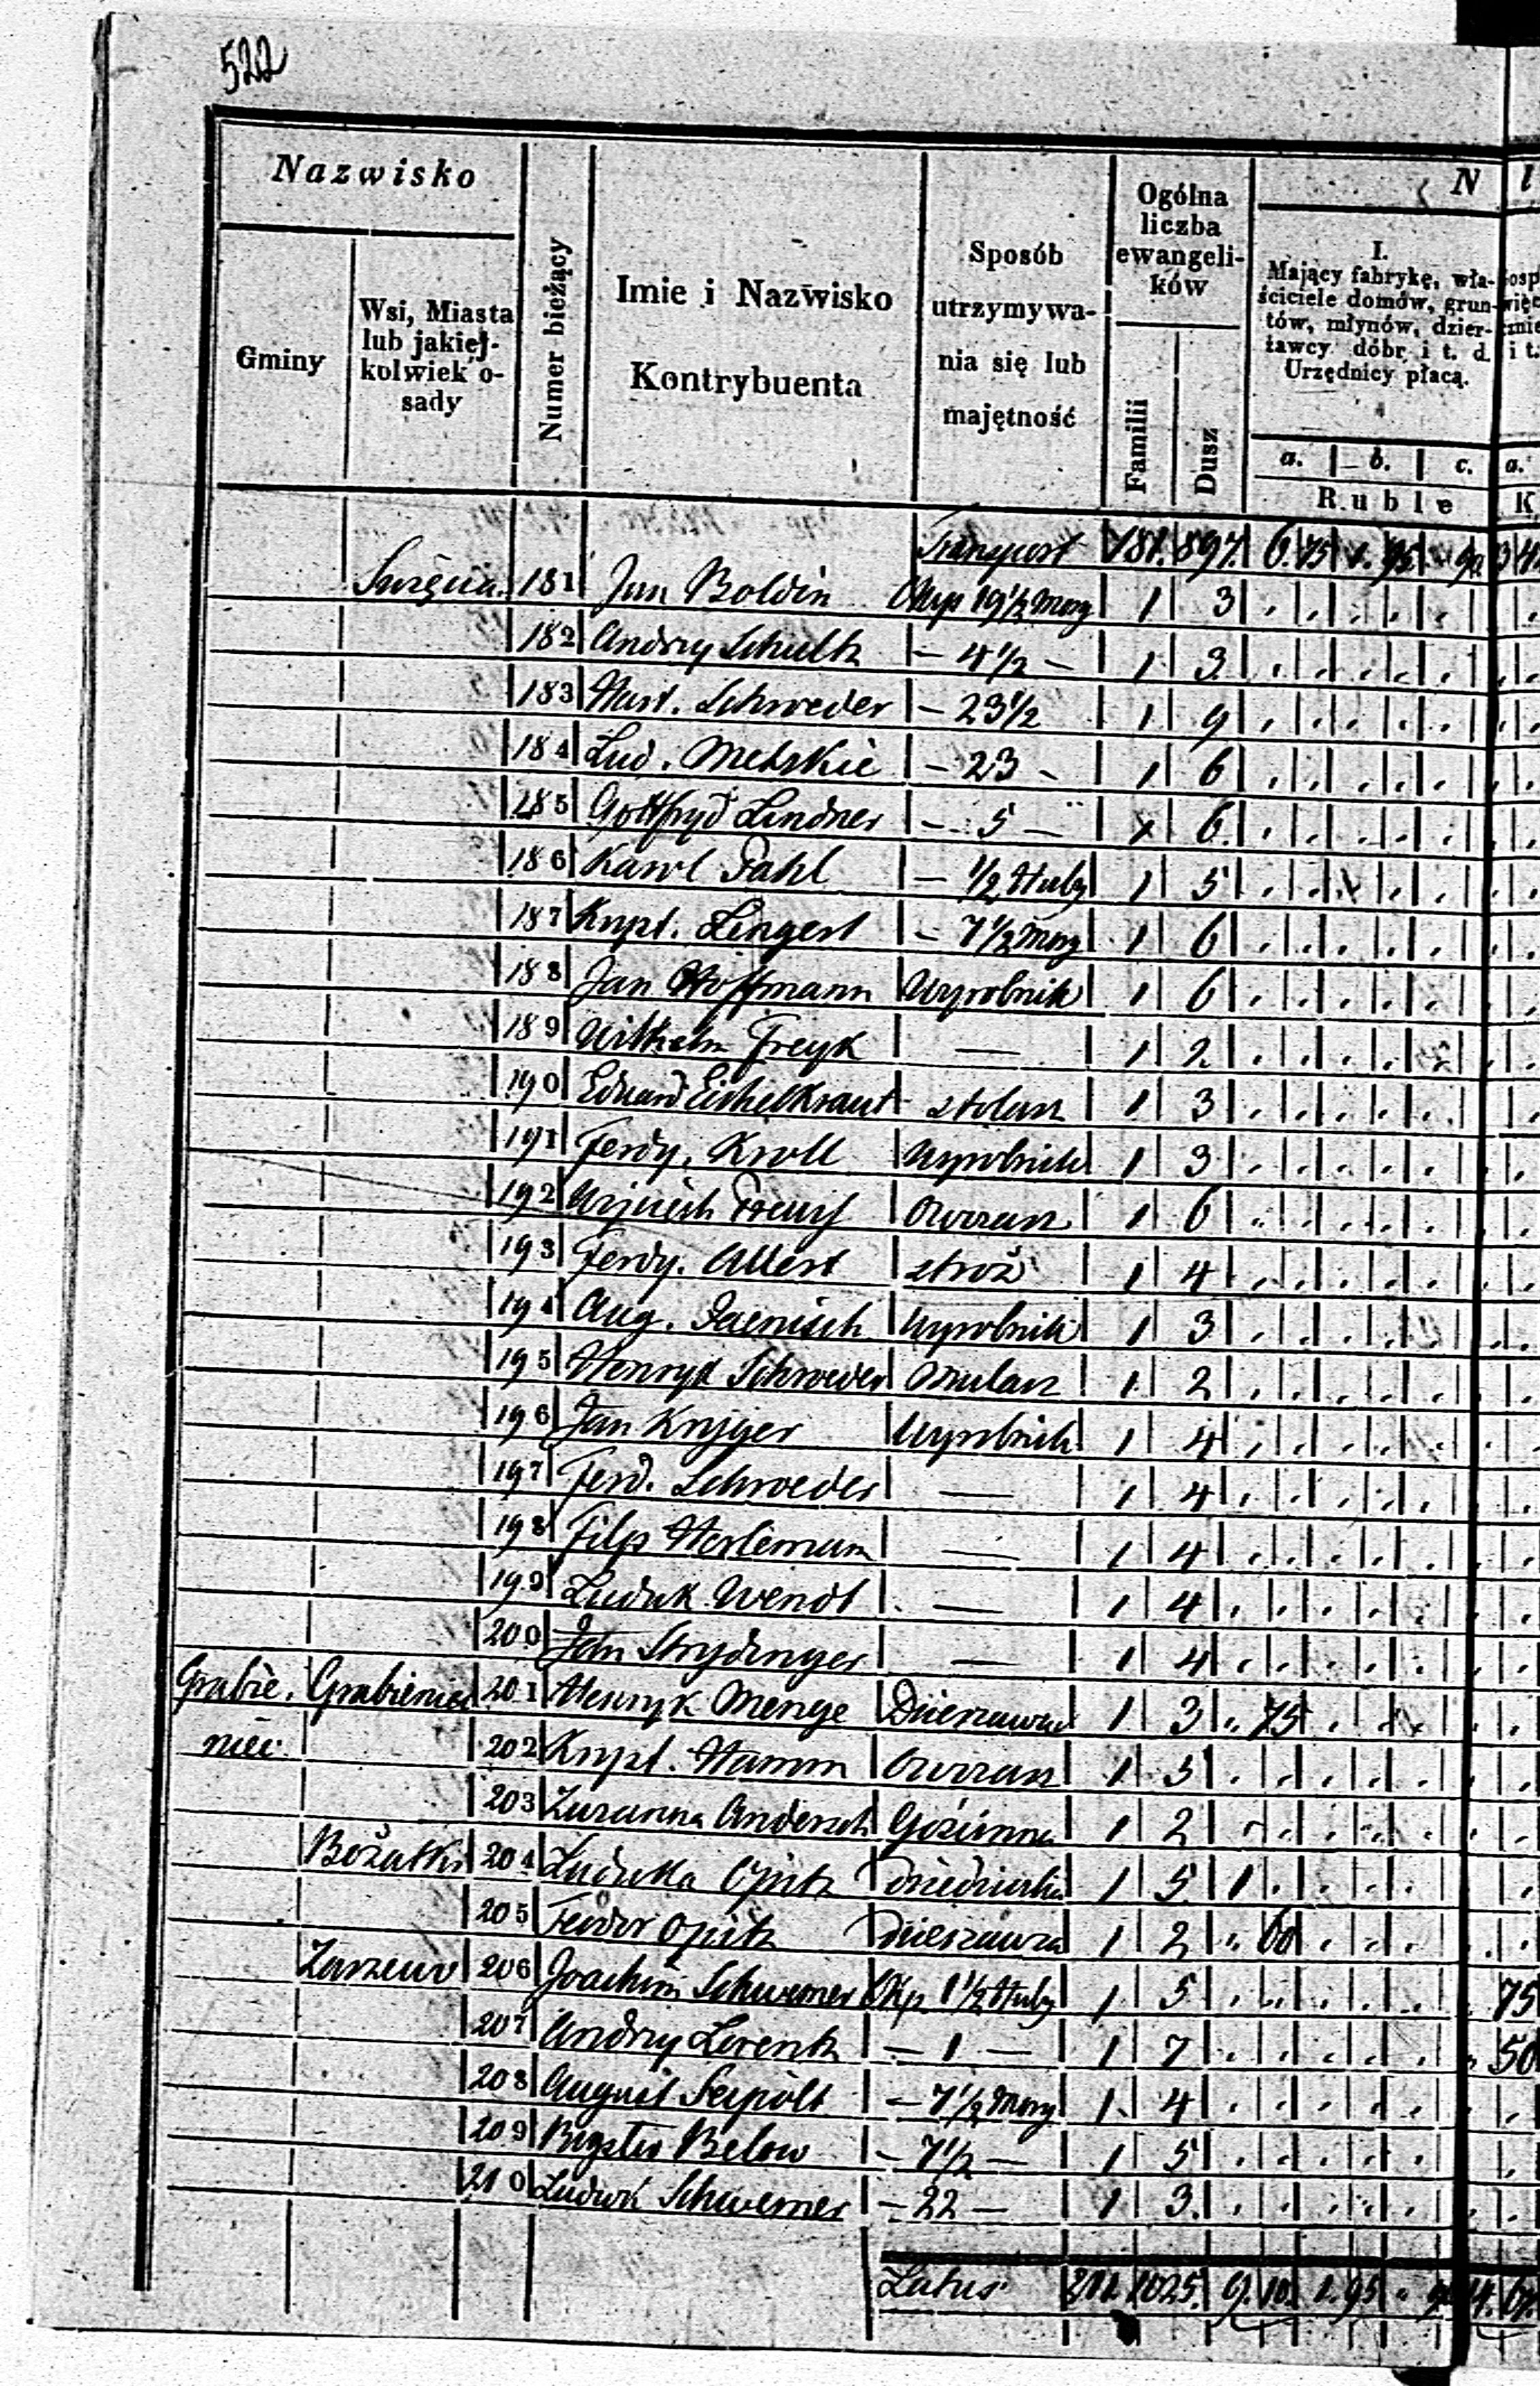 522
Nazwisko
Gminy
Wsi, Miasta
lub jakiej-
kolwiek o-
sady
Numer bieżący
Imie i Nazwisko
Kontrybuenta
Sposób
utrzymywa-
nia się lub
majętność
Ogólna
liczba
ewangeli-
ków
Familii
Dusz
N
I.
Mający fabrykę, wła-
ściciele domów, grun-
tów, młynów, dzier-
żawcy dóbr i t. d.
Urzędnicy płacą.
a. b. c. a.
Ruble K
Transport 181. 897. 6. 75 1. 95
181 Jan Boldin Okup 19½ Morg 1 3
182 Andrzy Schultz — 4½ — 1 3
183 Mart. Schroeder — 23½ 1 9
184 Lud. Metskie — 23 — 1 6
185 Gottfryd Lindner — 5 — 1 6
186 Karol Fahl — ½ Huby 1 5
187 Krypt. Lingert — 7½ Morg 1 6
188 Jan Hoffmann Wyrobnik 1 6
189 Wilhelm Freyk — 1 2
190 Eduard Eichelkraut stolarz 1 3
191 Ferdy. Kroll Wyrobnik 1 3
192 Owczarz 1 6
193 Ferdy. Allert stroż 1 4
194 Aug. Jaenisch Wyrobnik 1 3
195 Henryk Schroeder 1 2
196 Jan Kryger Wyrobnik 1 4
197 Ferd. Schroeder — 1 4
198 Filip — 1 4
199 Ludwk Wendt — 1 4
200 Jan Strydinger — 1 4
Grabie- 201 Henryk Menge Dzierzawca 1 3 75
niec 202 Krypt. Hamm Owczarz 1 5
203 Zuzanna Andersch Gościnna 1 2
Bożatki 204 Ludwka Opitz Dziedziczka 1 5 1
205 Teodor Opitz Dzierzawca 1 2 60
206 Joachim Schwemer Okp 1½ Huby 1 5 75
207 Andrzy Lorentz — 1 — 1 7 50
208 August Seipolt — 7½ Morg 1 4
209 Below — 7½ — 1 5
210 Ludwk Schwemer — 22 — 1 3
Latus 1025. 9. 10. 1. 95